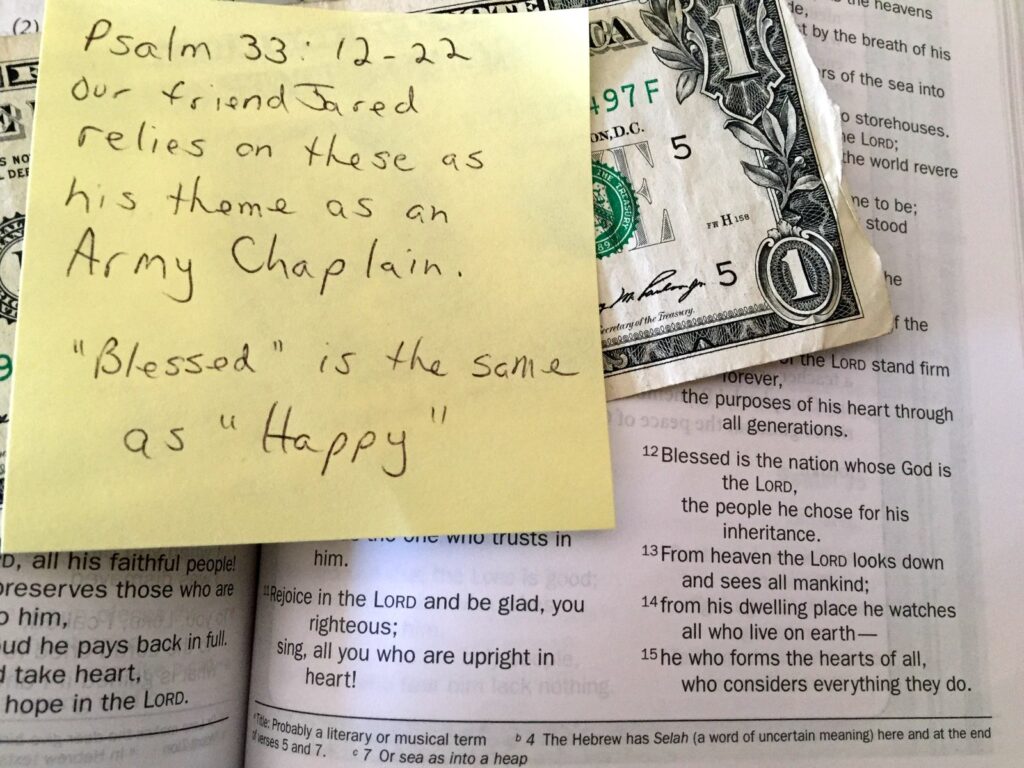 Psalm 33: 12-22
Our friend Jared
relies on these as
his theme as an
Army Chaplain.
"Blessed" is the same
as "Happy"
(2)
497 F
ON, D.C.
5
1
THE TREASURY
FW H 158
5
1
Secretary of the Treasury.
the heavens
by the breath of his
of the sea into
storehouses.
LORD;
the world revere
to be;
stood
he
of the
of the LORD stand firm
forever,
the purposes of his heart through
all generations.
12 Blessed is the nation whose God is
the LORD,
the people he chose for his
inheritance.
13 From heaven the LORD looks down
and sees all mankind;
14 from his dwelling place he watches
all who live on earth—
15 he who forms the hearts of all,
who considers everything they do.
all his faithful people!
preserves those who are
him,
he pays back in full.
take heart,
hope in the LORD.
the one who trusts in
him.
11 Rejoice in the LORD and be glad, you
righteous;
sing, all you who are upright in
heart!
a Title: Probably a literary or musical term b 4 The Hebrew has Selah (a word of uncertain meaning) here and at the end
of verses 5 and 7. c 7 Or sea as into a heap